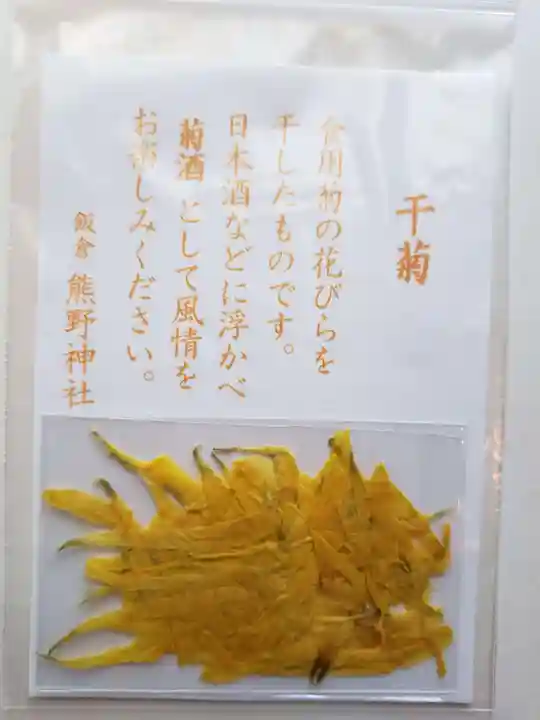 干菊
食用菊の花びらを
干したものです。
日本酒などに浮かべ
菊酒 として風情を
お楽しみください。
飯倉 熊野神社